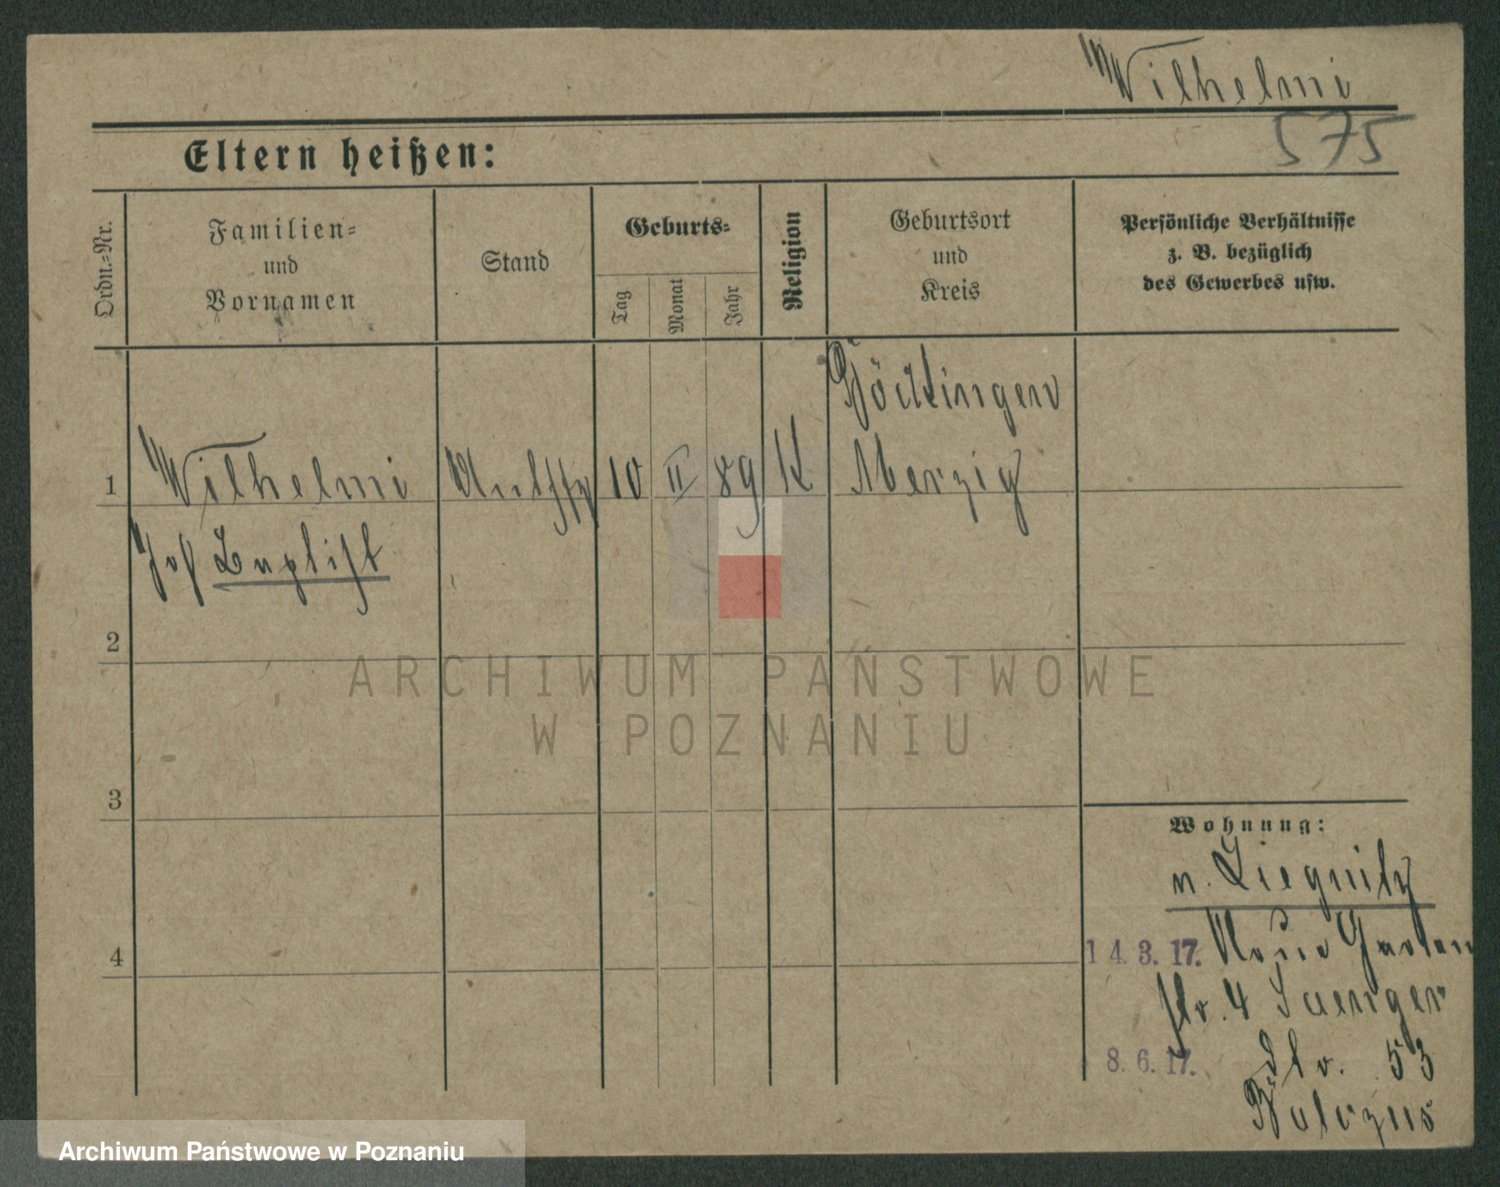 Wilhelmi
575
Eltern heißen:
Ordn.-Nr.
Familien-
und
Vornamen
Stand
Geburts-
Tag
Monat
Jahr
Religion
Geburtsort
und
Kreis
Persönliche Verhältnisse
z. B. bezüglich
des Gewerbes usw.
1 Wilhelmi 10 II 89 K Merzig
Joh Baptist
2
3
4
Wohnung:
n. Liegnitz
14.3.17. Neue Garten
str. 4 Saenger
8.6.17. 53
ARCHIWUM PAŃSTWOWE
W POZNANIU
Archiwum Państwowe w Poznaniu